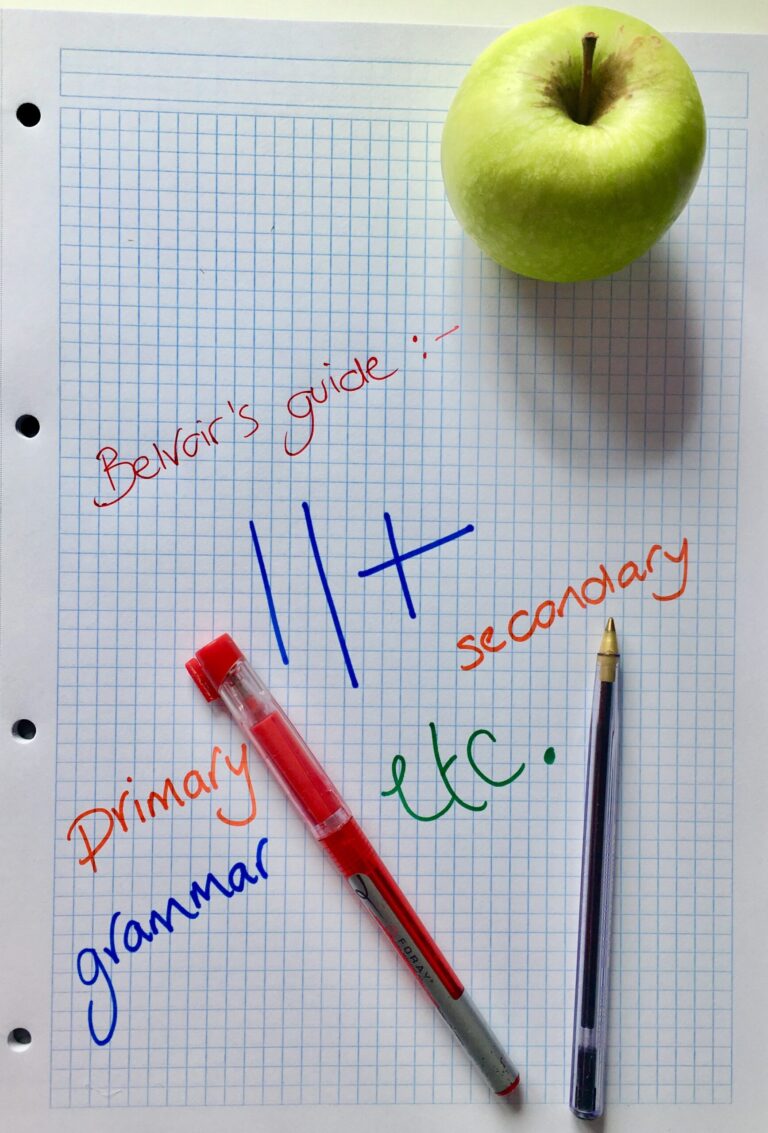 Belvoir's guide :-
11+
secondary
etc.
primary
grammar
FORAY